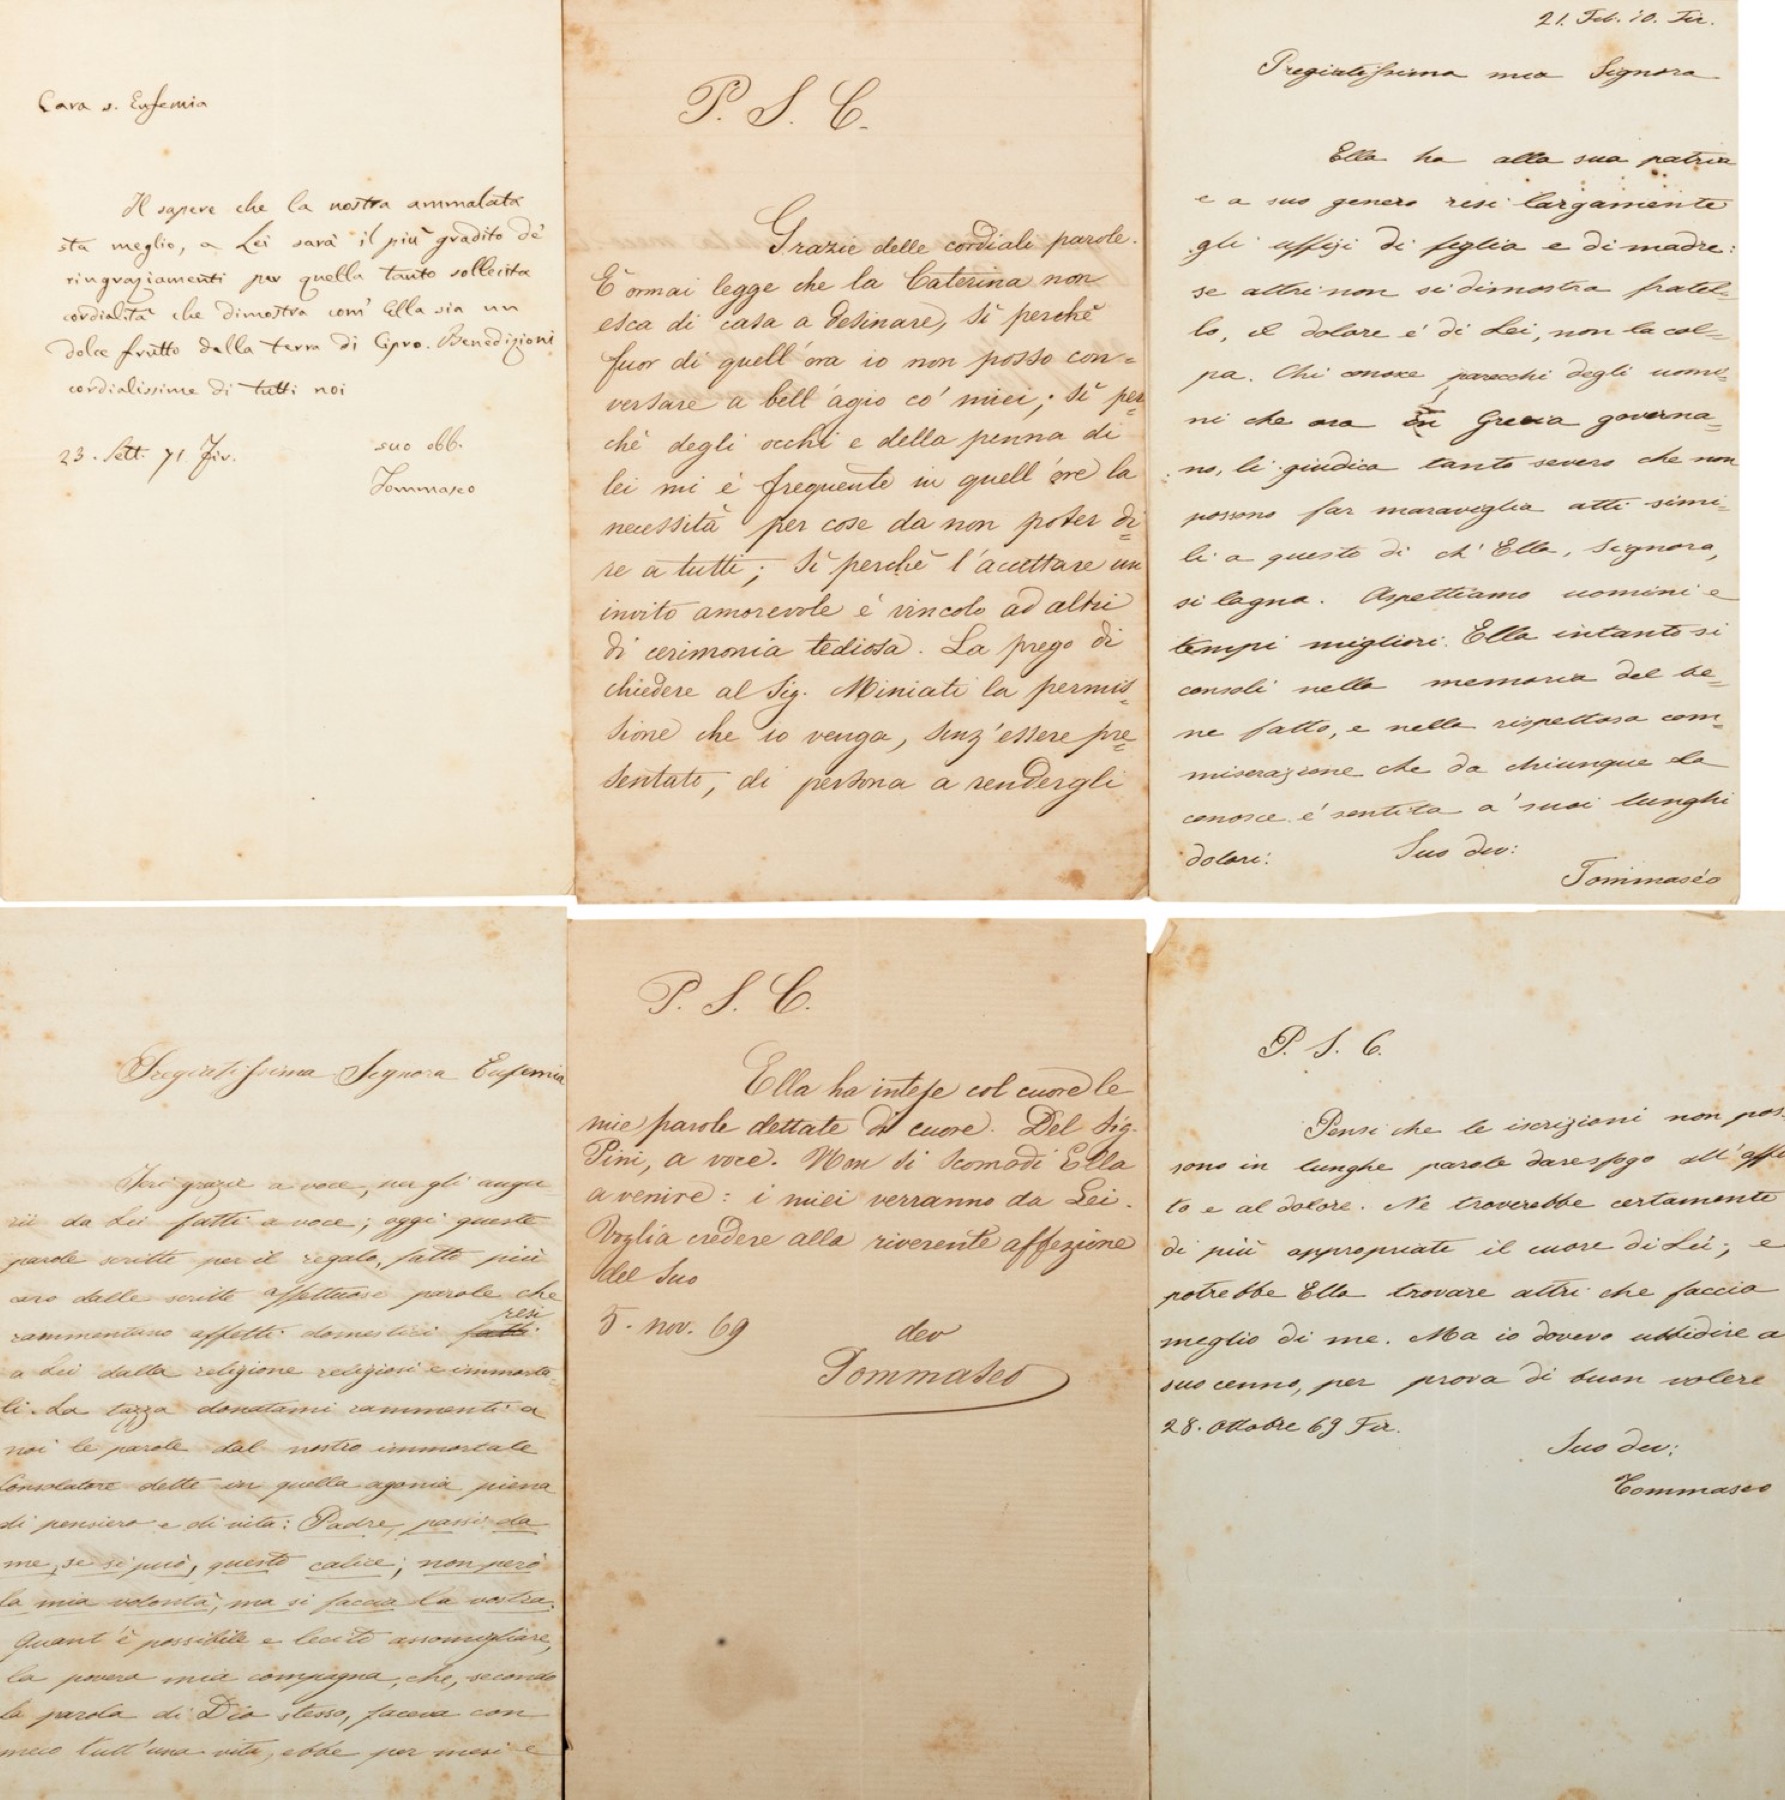 Cara s. Eufemia
Il sapere che la nostra ammalata
sta meglio, a Lei sarà il più gradito de'
ringraziamenti per quella tanto sollecita
cordialità che dimostra com' Ella sia un
dolce frutto della terra di Cipro. Benedizioni
cordialissime di tutti noi
23. Sett. 71 Fir.
suo obb.
Tommaseo
P. S. C.
Grazie delle cordiali parole.
È ormai legge che la Caterina non
esca di casa a desinare, sì perchè
fuor di quell'ora io non posso con=
versare a bell'agio co' miei; sì per=
chè degli occhi e della penna di
lei mi è frequente in quell'ore la
necessità per cose da non poter di=
re a tutti; sì perchè l'accettare un
invito amorevole è vincolo ad altri
di cerimonia tediosa. La prego di
chiedere al Sig. Miniati la permis=
sione che io venga, senz'essere pre=
sentato, di persona a rendergli
21. Feb. 70. Fir.
Pregiatissima mia Signora
Ella ha alla sua patria
e a suo genero resi largamente
gli uffizi di figlia e di madre:
se altri non si dimostra fratel=
lo, il dolore è di Lei, non la col=
pa. Chi conosce parecchi degli uomi=
ni che ora in Grecia governa=
no, li giudica tanto severo che non
possono far maraviglia atti simi=
li a questo di ch'Ella, Signora,
si lagna. Aspettiamo uomini e
tempi migliori. Ella intanto si
consoli nella memoria del be=
ne fatto, e nella rispettosa com=
miserazione che da chiunque la
conosce è sentita a' suoi lunghi
dolori.
Suo dev:
Tommaséo
Pregiatissima Signora Eufemia
Ieri grazie a voce, per gli augu=
rii da Lei fatti a voce; oggi queste
parole scritte per il regalo, fatto più
caro dalle scritte affettuose parole che
rammentano affetti domestici fatti resi
a Lei dalla religione religiosi e immorta=
li. La tazza donatami rammenti a
noi le parole dal nostro immortale
Consolatore dette in quella agonia piena
di pensiero e di vita: Padre, passi da
me, se si può, questo calice; non però
la mia volontà, ma si faccia la vostra.
Quant'è possibile e lecito assomigliare,
la povera mia compagna, che, secondo
la parola di Dio stesso, faceva con
meco tutt'una vita, ebbe per mesi e
P. S. C.
Ella ha intese col cuore le
mie parole dettate di cuore. Del Sig.
Pini, a voce. Non si scomodi Ella
a venire: i miei verranno da Lei.
Voglia credere alla riverente affezione
del Suo
5. nov. 69
dev
Tommaseo
P. S. C.
Pensi che le iscrizioni non pos=
sono in lunghe parole dare sfogo all'affet
to e al dolore. Ne troverebbe certamente
di più appropriate il cuore di Lei; e
potrebbe Ella trovare altri che faccia
meglio di me. Ma io dovevo ubbidire a
suo cenno, per prova di buon volere
28. Ottobre 69 Fir.
Suo dev:
Tommaseo